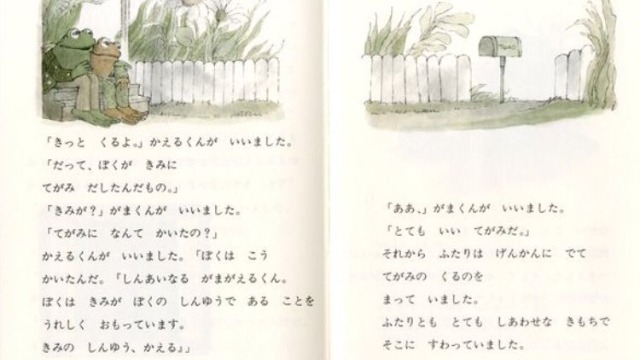 「きっと　くるよ。」かえるくんが　いいました。
「だって、ぼくが　きみに
てがみ　だしたんだもの。」
「きみが？」がまくんが　いいました。
「てがみに　なんて　かいたの？」
かえるくんが　いいました。「ぼくは　こう
かいたんだ。『しんあいなる　がまがえるくん。
ぼくは　きみが　ぼくの　しんゆうで　ある　ことを
うれしく　おもっています。
きみの　しんゆう、かえる』」
「ああ、」がまくんが　いいました。
「とても　いい　てがみだ。」
それから　ふたりは　げんかんに　でて
てがみの　くるのを
まって　いました。
ふたりとも　とても　しあわせな　きもちで
そこに　すわっていました。